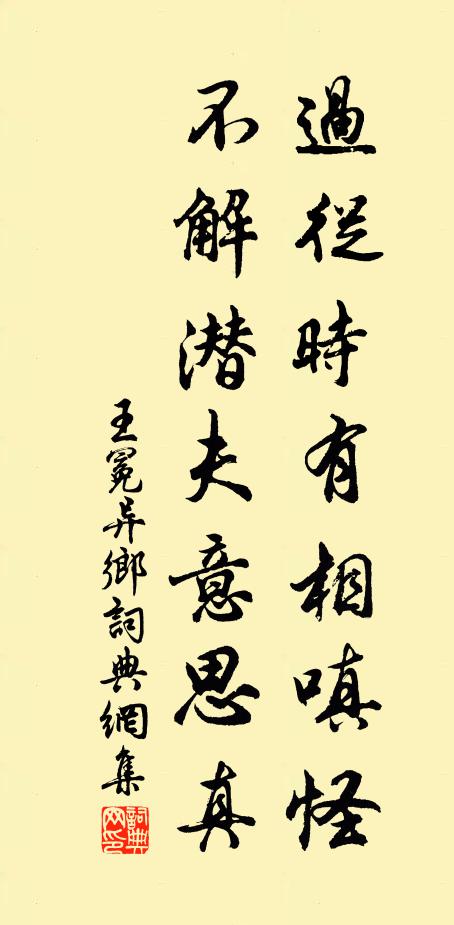 過從時有相嗔怪
不解潛夫意思真
王冕异鄉詞典網集
詞典網印